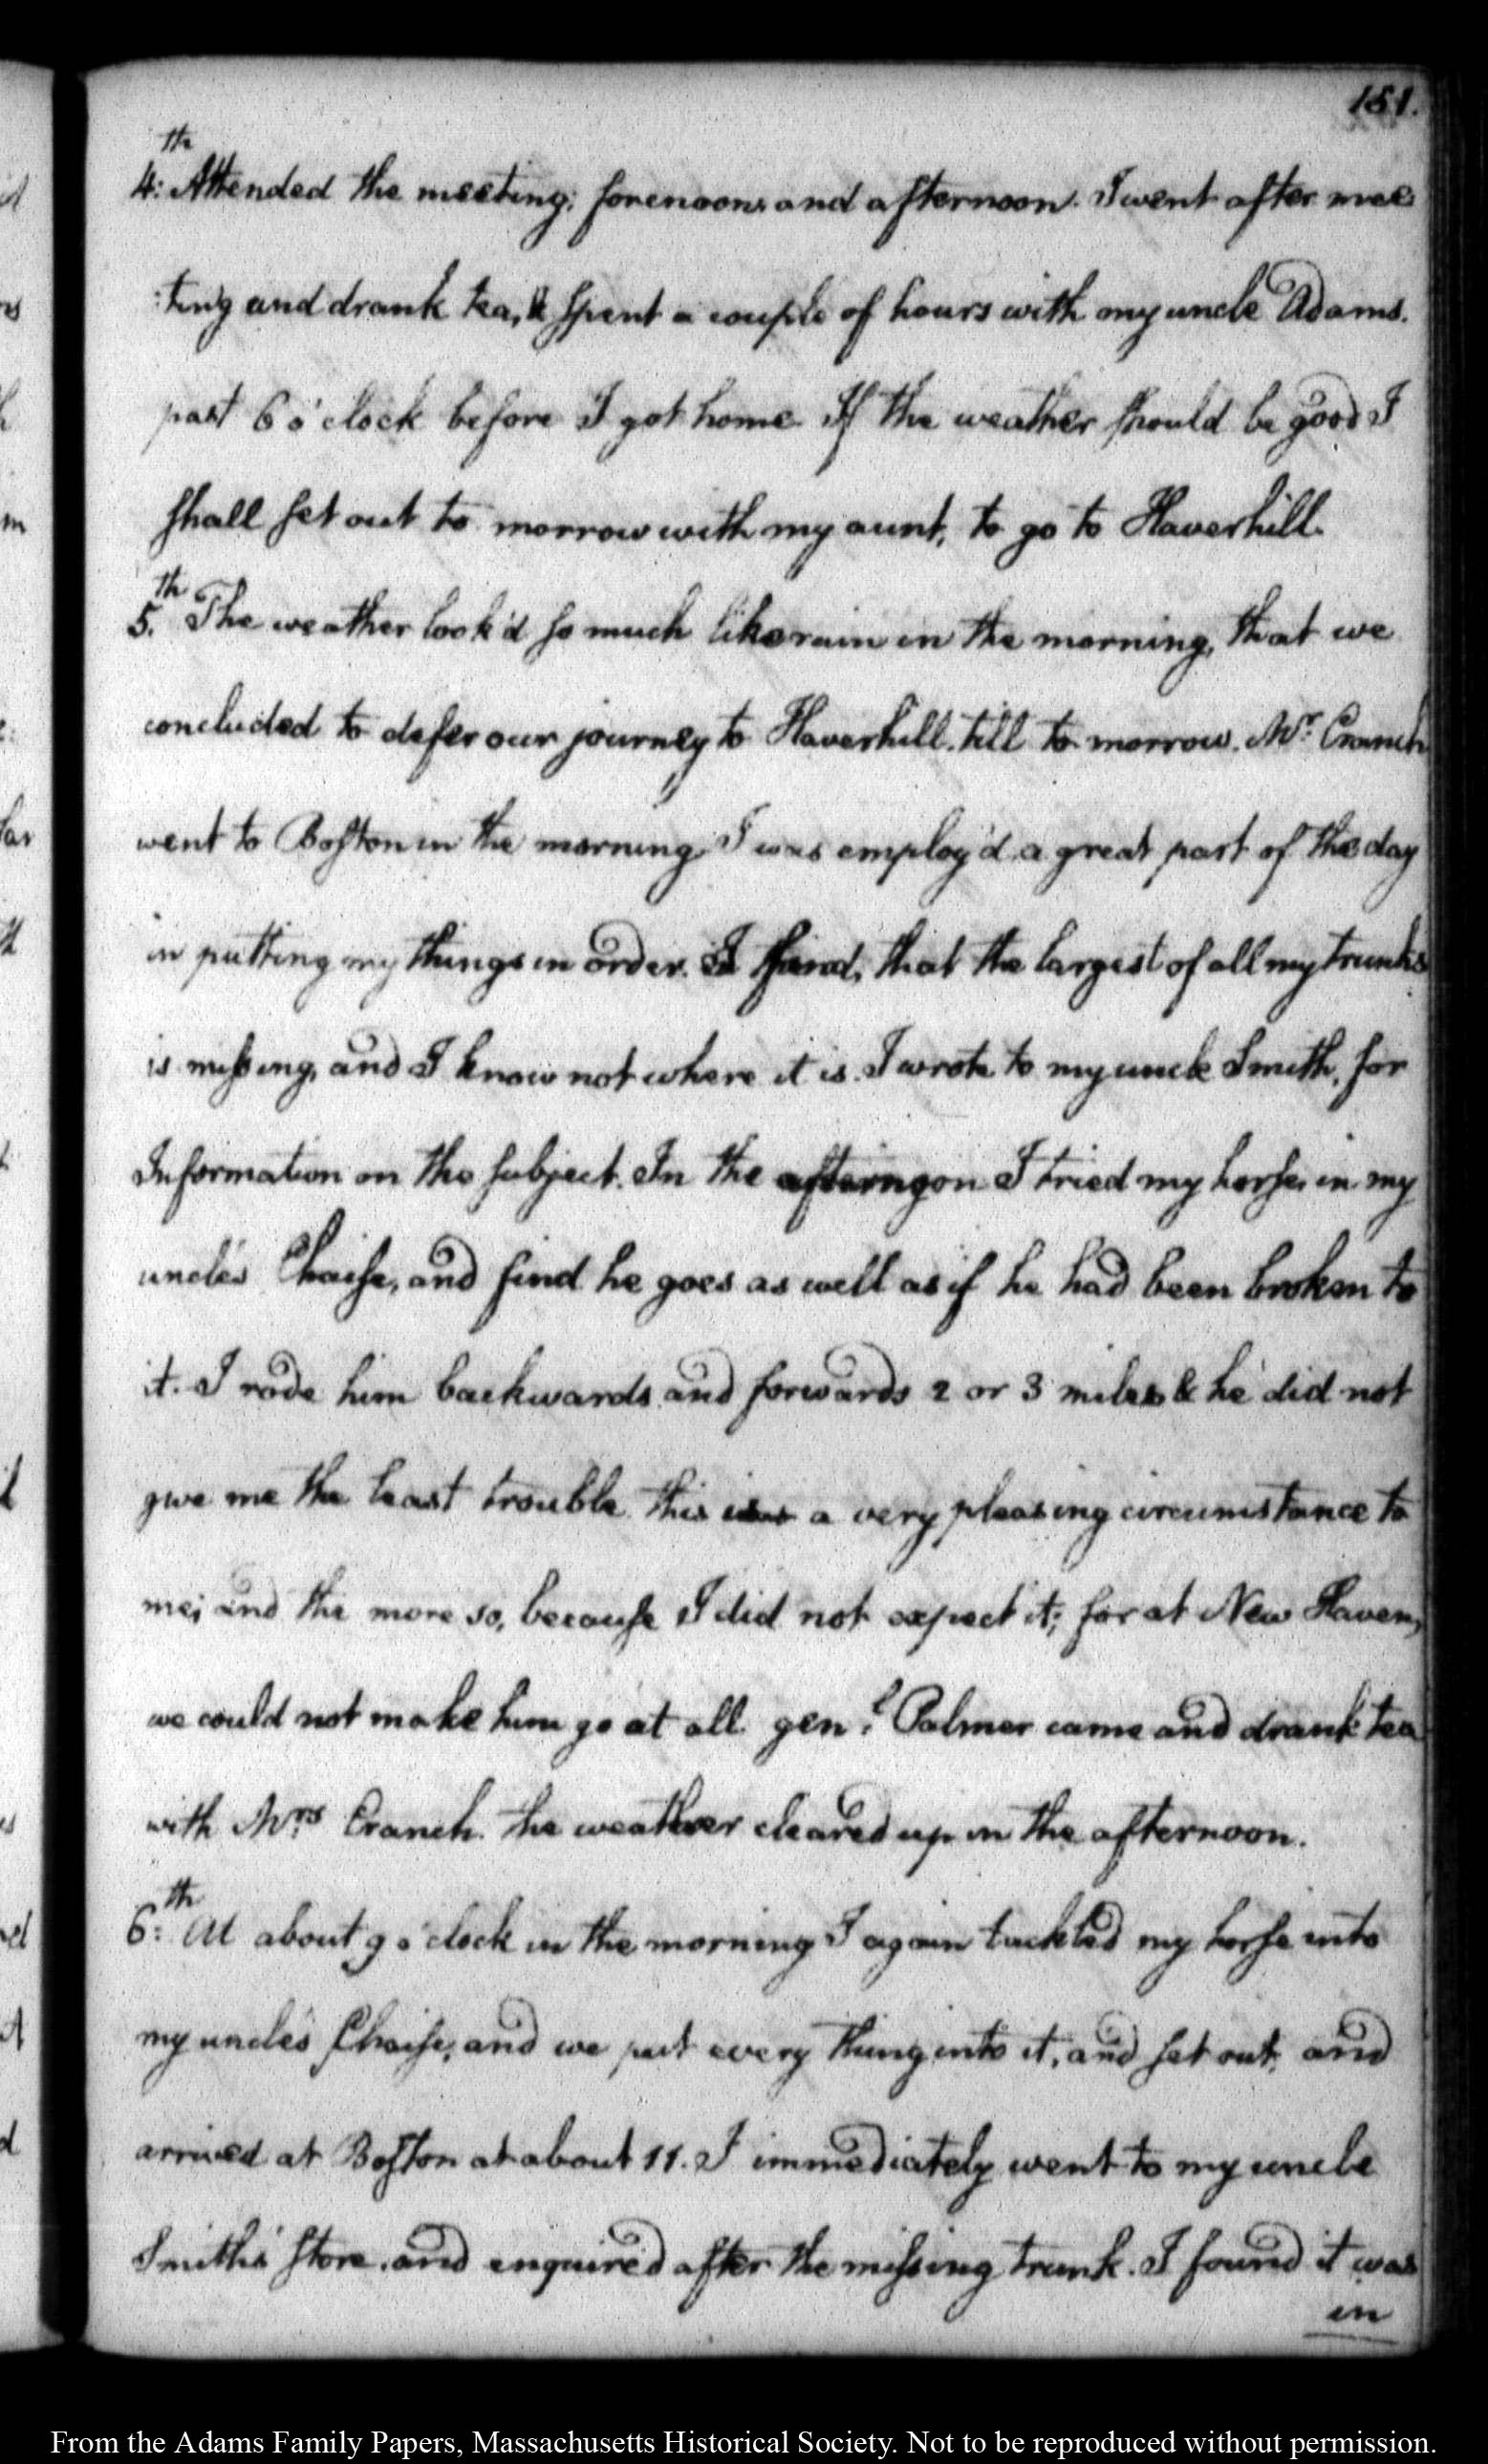 151.
4:th Attended the meeting; forenoon, and afternoon. I went after mee
:ting and drank tea, & spent a couple of hours with my uncle Adams.
past 6 o'clock before I got home. If the weather should be good I
shall set out to morrow with my aunt, to go to Haverhill.
5.th The weather look'd so much like rain in the morning, that we
concluded to defer our journey to Haverhill till to morrow. Mr. Cranch
went to Boston in the morning. I was employ'd a great part of the day
in putting my things in order. I find, that the largest of all my trunks
is missing, and I know not where it is. I wrote to my uncle Smith, for
Information on the subject. In the afternoon I tried my horse, in my
uncle's Chaise, and find he goes as well as if he had been broken to
it. I rode him backwards and forwards 2 or 3 miles & he did not
give me the least trouble. this was a very pleasing circumstance to
me; and the more so, because I did not expect it; for at New Haven,
we could not make him go at all. genl. Palmer came and drank tea
with Mrs. Cranch. the weather cleared up in the afternoon.
6:th At about 9 o'clock in the morning I again tackled my horse into
my uncle's Chaise, and we put every thing into it, and set out, and
arrived at Boston at about 11. I immediately went to my uncle
Smith's store, and enquired after the missing trunk. I found it was
in
From the Adams Family Papers, Massachusetts Historical Society. Not to be reproduced without permission.